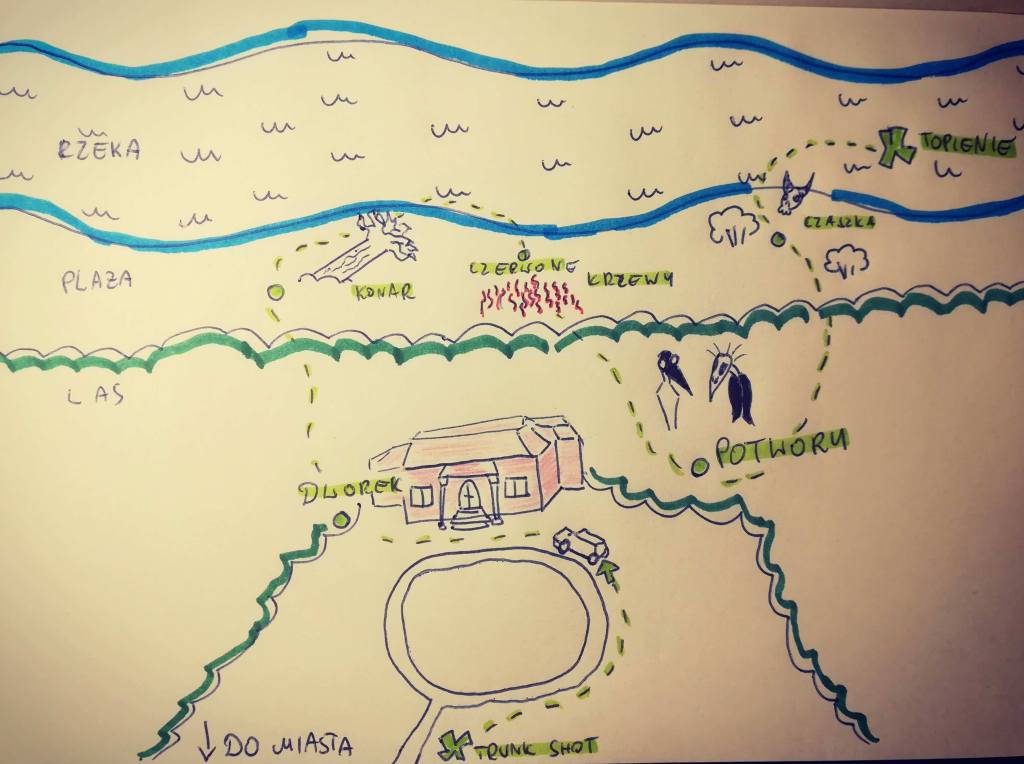 RZEKA
TOPIENIE
CZASZKA
PLAŻA
KONAR
CZERWONE KRZEWY
LAS
POTWORY
DWOREK
↓ DO MIASTA
TRUNK SHOT